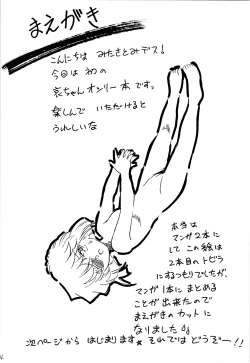 まえがき
こんにちは みたさとみデス!
今回は 初の
哀ちゃんオンリー本ですっ
楽しんで いただけると
うれしいな
本当は
マンガ2本に
して この絵は
2本目の トビラ
にするつもりでしたが、
マンガ1本に まとめる
ことが 出来たので
まえがきの カットに
なりました
次ページから はじまります それでは どうぞー!!